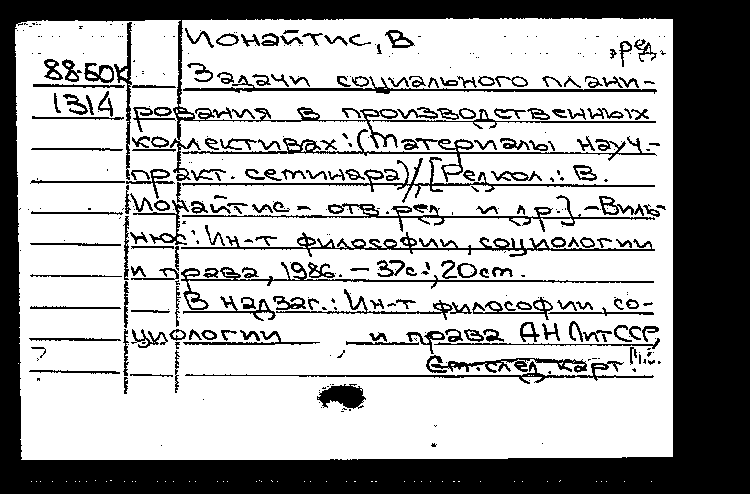 Ионайтис, В
,ред.
88-60К Задачи социального плани-
1314 рования в производственных
коллективах: (Материалы науч.-
практ. семинара)/, [Редкол.: В.
Ионайтис - отв. ред. и др.]. - Виль-
нюс: Ин-т философии, социологии
и права, 1986. - 37с.; 20см.
В надзаг.: Ин-т философии, со-
циологии и права АН ЛитССР,
См. след. карт.